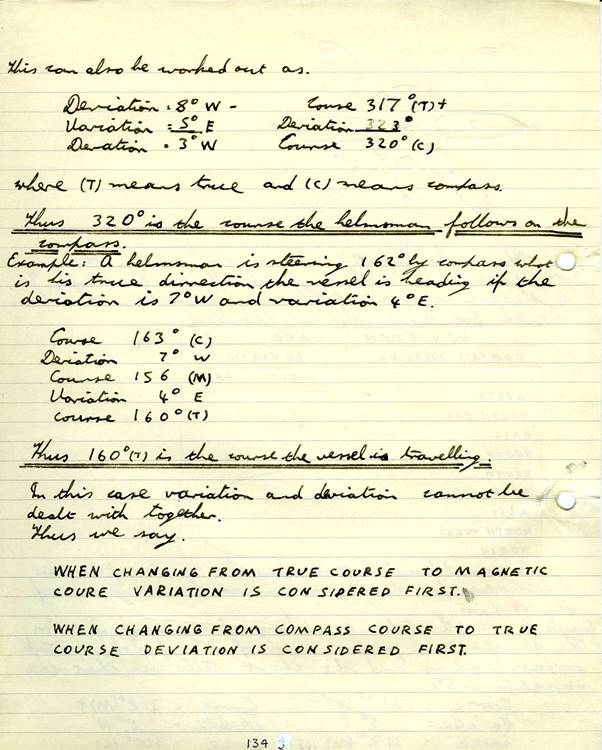 This can also be worked out as.
Deviation = 8° W - Course 317° (T) +
Variation = 5° E Deviation 323°
Deviation = 3° W Course 320° (C)
where (T) means true and (C) means compass.
Thus 320° is the course the helmsman follows on the
compass.
Example: A helmsman is steering 162° by compass what
is his true dirrection the vessel is heading if the
deviation is 7° W and variation 4° E.
Course 163° (C)
Deviation 7° W
Course 156 (M)
Variation 4° E
Course 160° (T)
Thus 160° (T) is the course the vessel is travelling.
In this case variation and deviation cannot be
dealt with together.
Thus we say.
WHEN CHANGING FROM TRUE COURSE TO MAGNETIC
COURE VARIATION IS CONSIDERED FIRST.
WHEN CHANGING FROM COMPASS COURSE TO TRUE
COURSE DEVIATION IS CONSIDERED FIRST.
134